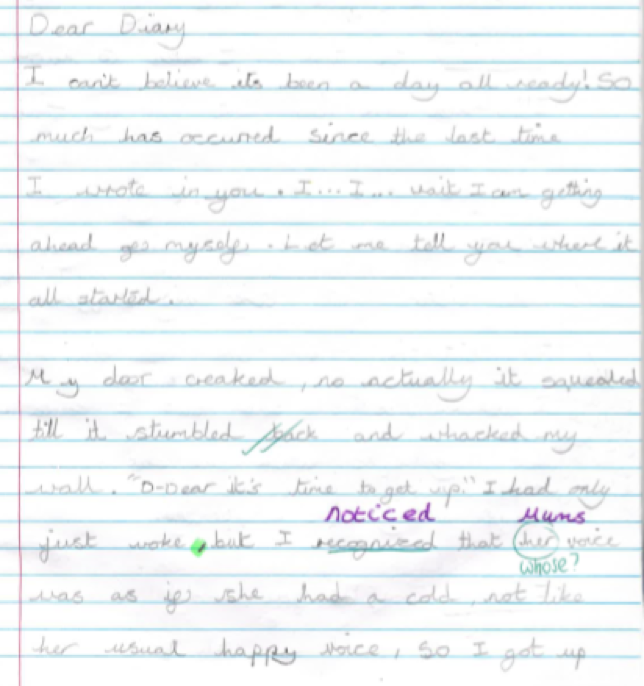 Dear Diary
I can't believe its been a day all ready! So
much has occurred since the last time
I wrote in you. I... I... wait I am getting
ahead of myself. Let me tell you where it
all started.
My door creaked, no actually it squealed
till it stumbled back and whacked my
wall. "D-Dear it's time to get up." I had only
noticed Mums
just woke, but I recognized that her voice
whose?
was as if she had a cold, not like
her usual happy voice, so I got up